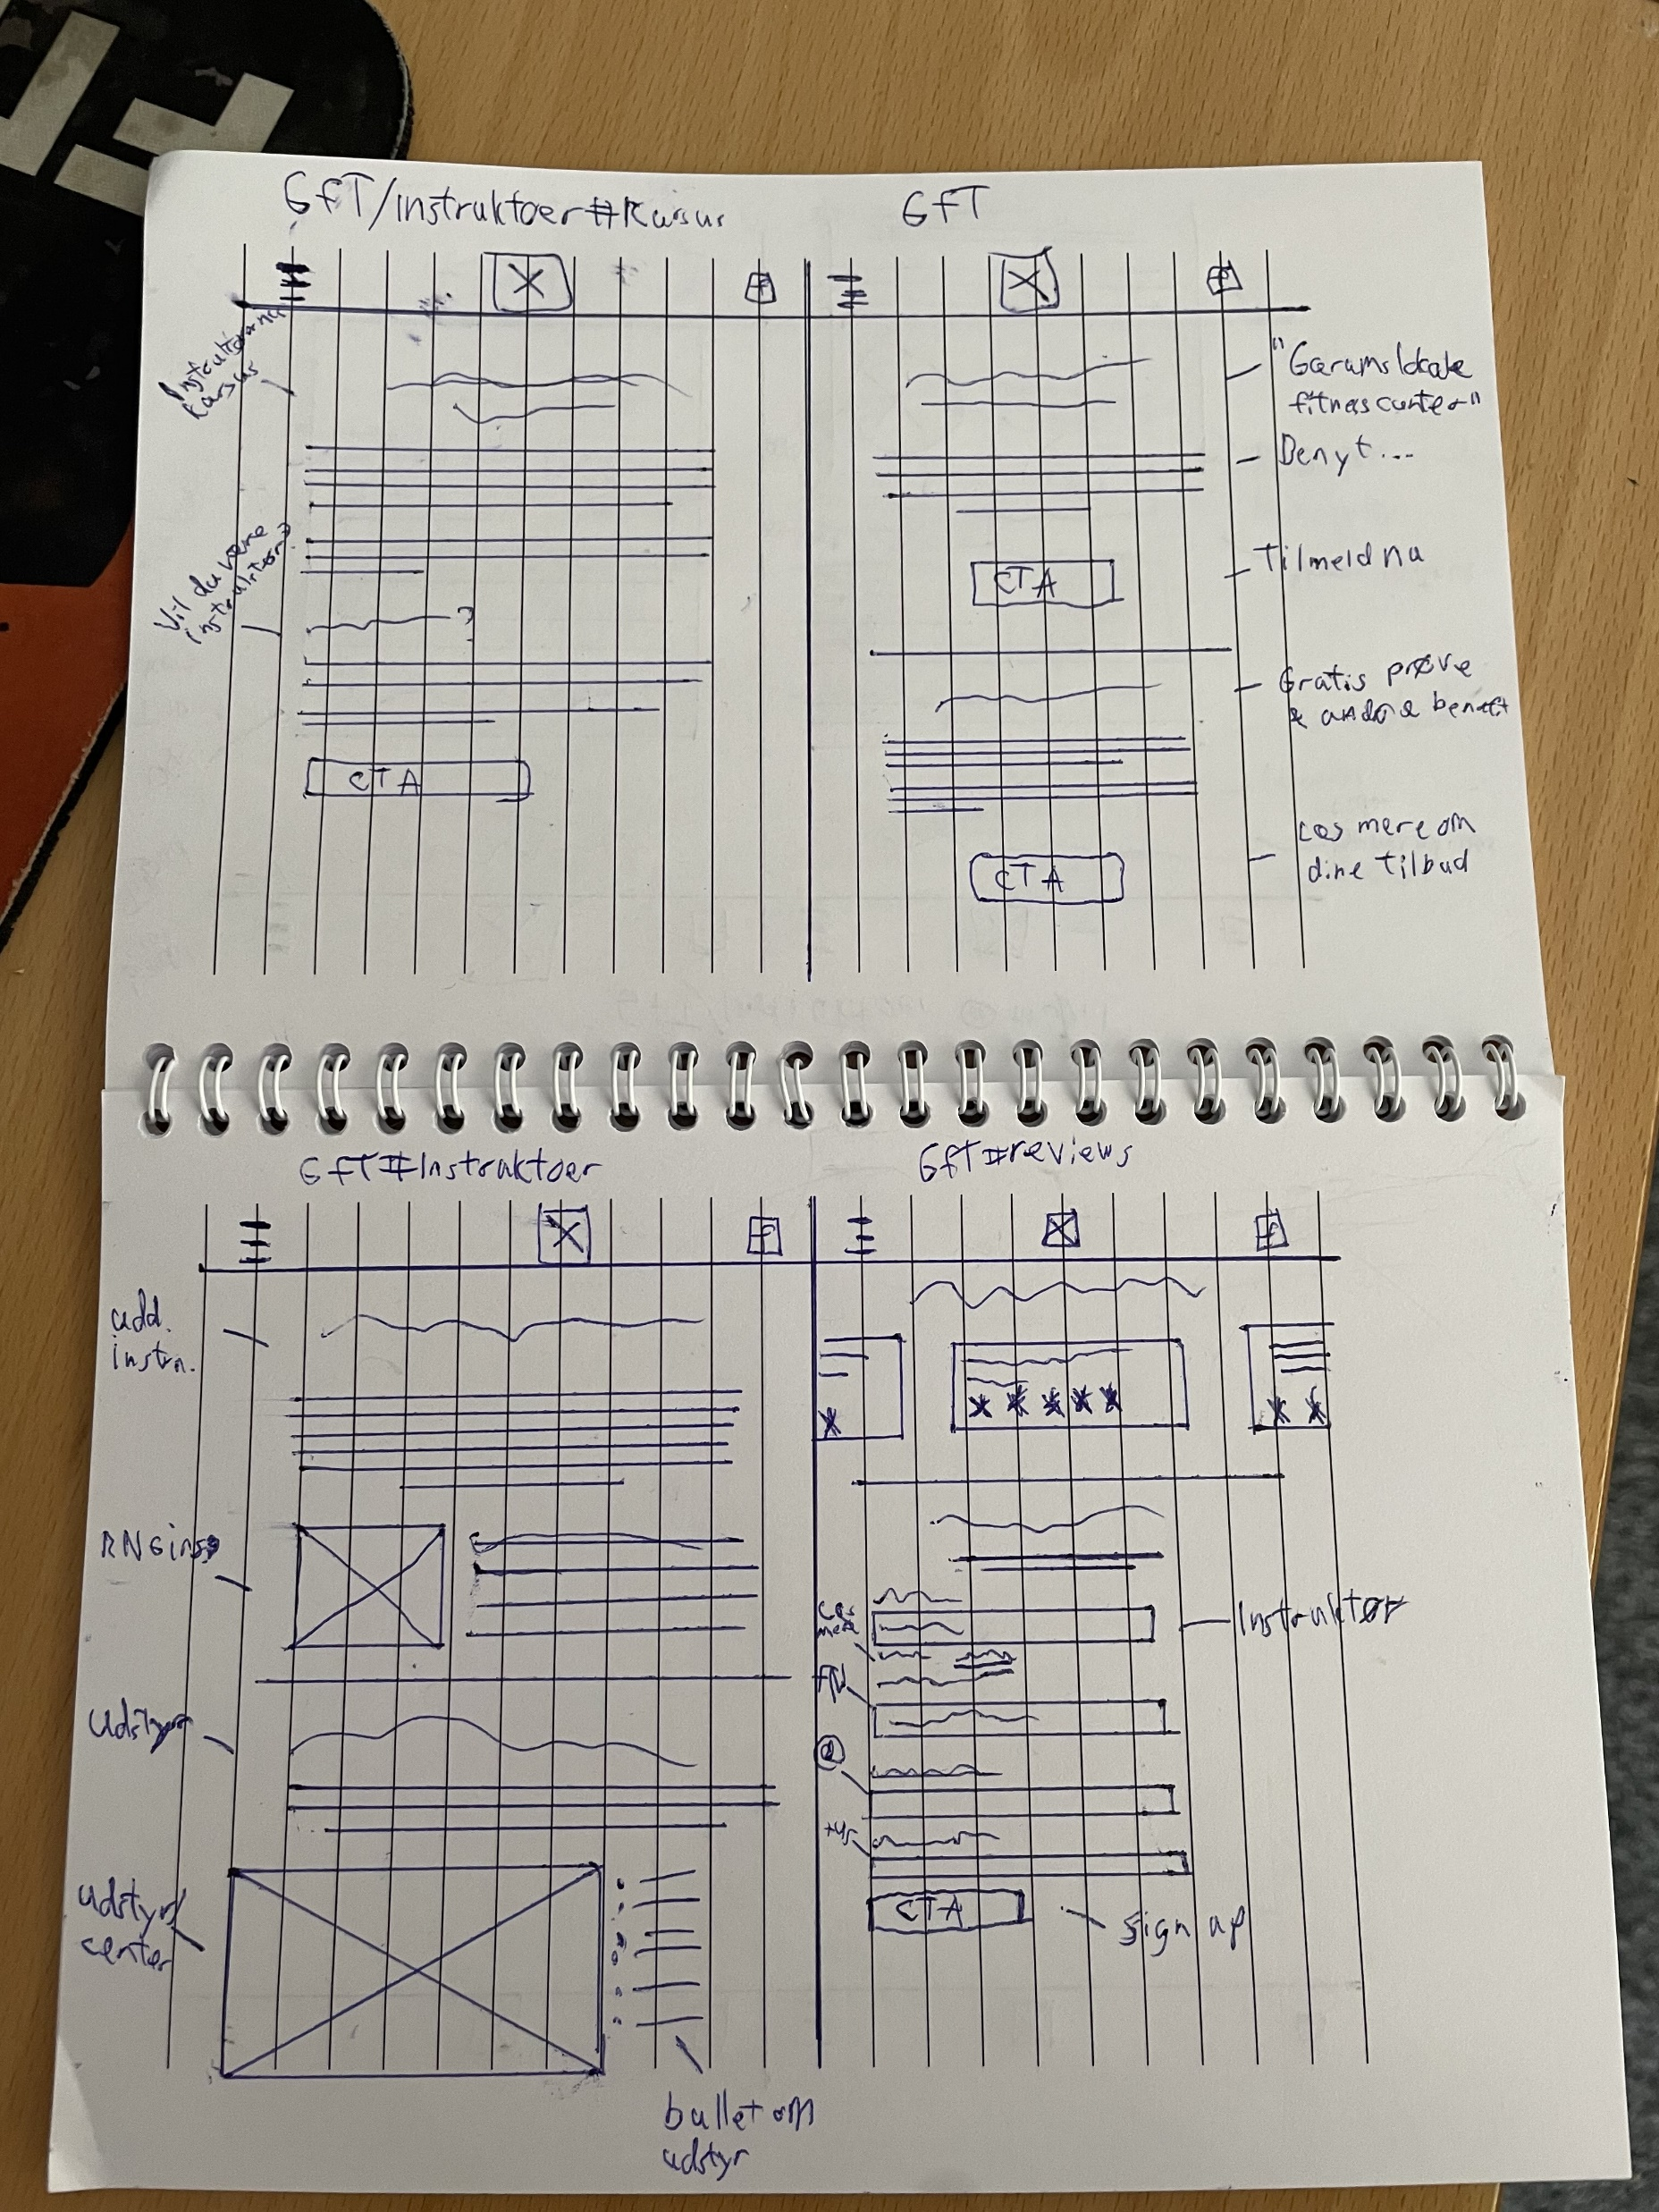 GFT/instruktoer#Kursus
Instruktørernes
Kursus
Vil du være
instruktør?
CTA
GFT
"Gørums lokale
fitnesscenter"
Benyt...
Tilmeld nu
CTA
Gratis prøve
& andre
Læs mere om
dine tilbud
CTA
GFT#Instruktoer
udd.
instru.
Udstyr
udstyr/
center
bullet om
udstyr
GFT#reviews
Læs
mere
Instruktør
@
CTA
Sign up